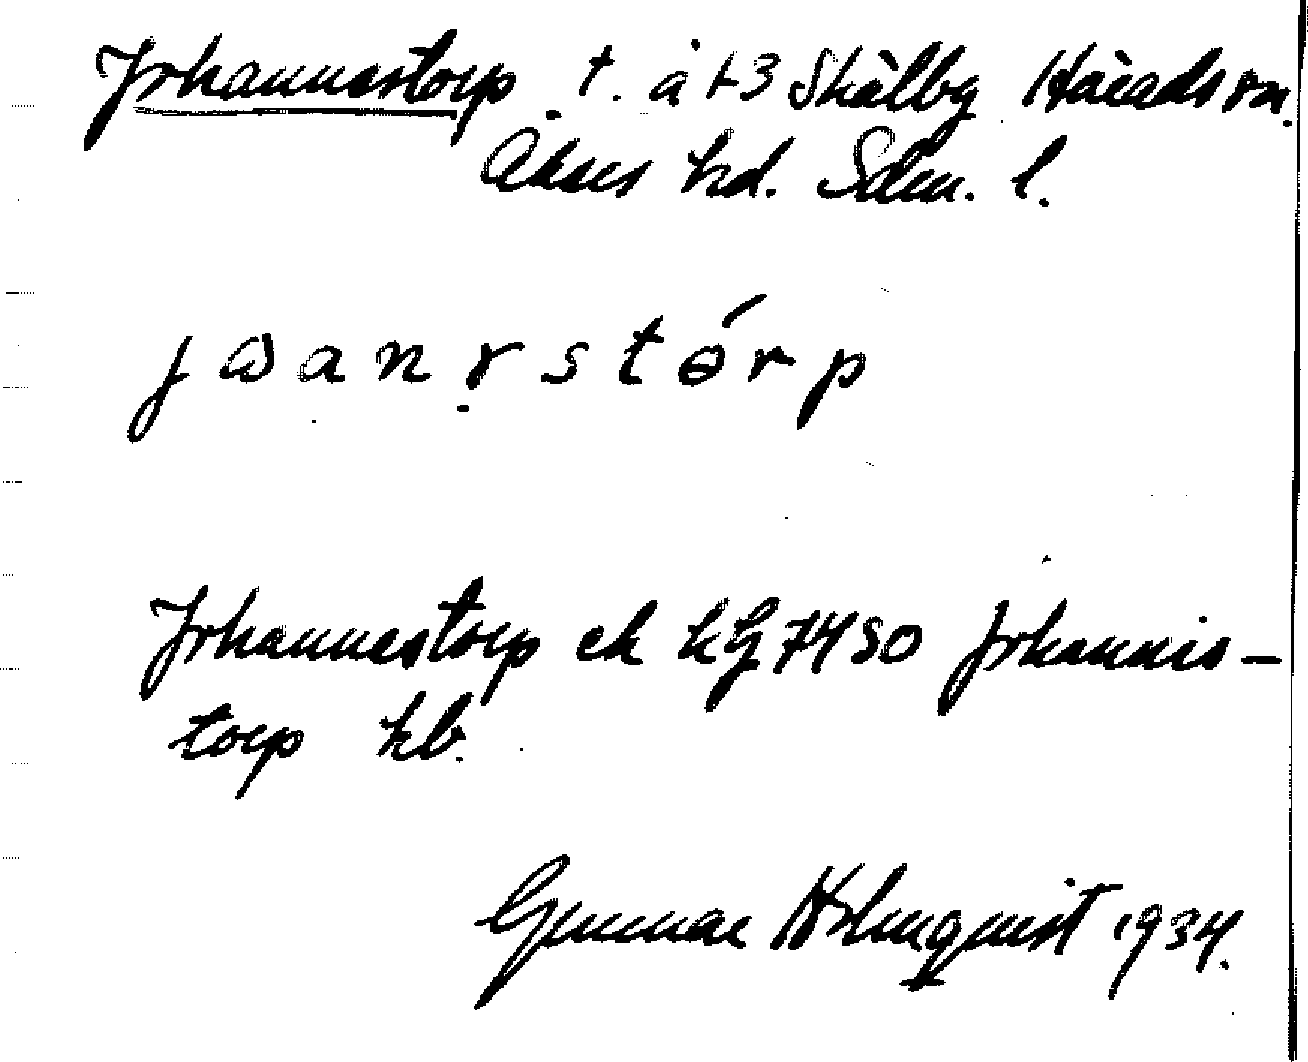 Johannestorp. t. å 1-3 Skälby Härads sn.
Åkers hd. Sdm. l.
jωanɤ̣stɵ́rp
Johannestorp ek kg 7450 Johannis-
torp kb.
Gunnar Holmquist 1934.